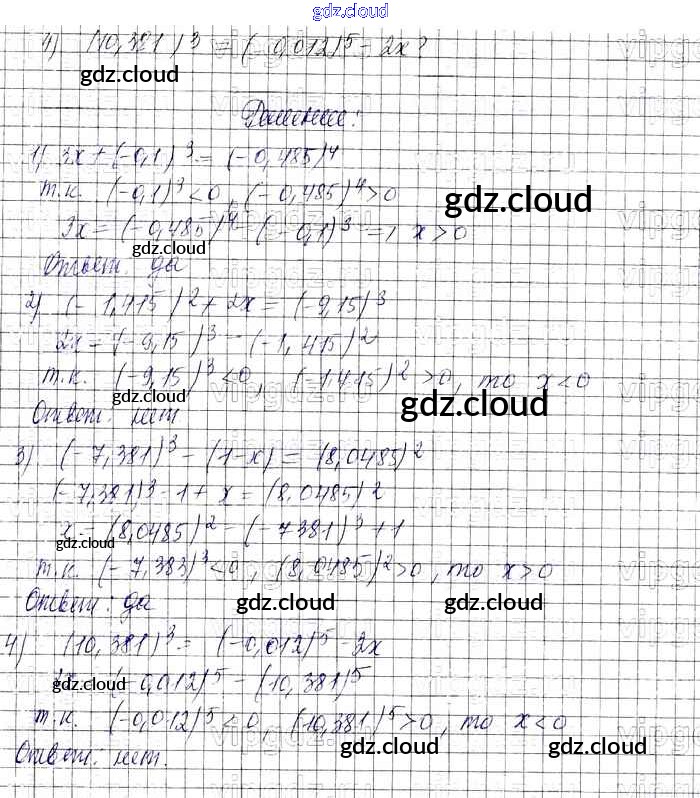 gdz.cloud
4) (10,381)³ = (-0,012)⁵ - 2x?
gdz.cloud
Решение:
1) 3x + (-0,1)³ = (-0,485)⁴
т.к. (-0,1)³ < 0, (-0,485)⁴ > 0
gdz.cloud
3x = (-0,485)⁴ - (-0,1)³ => x > 0
gdz.cloud
Ответ: да
2) (-1,415)² + 2x = (-9,15)³
2x = (-9,15)³ - (-1,415)²
т.к. (-9,15)³ < 0, (-1,415)² > 0, то x < 0
gdz.cloud gdz.cloud
Ответ: нет
3) (-7,381)³ - (1-x) = (8,0485)²
(-7,381)³ - 1 + x = (8,0485)²
x = (8,0485)² - (-7381)³ + 1
gdz.cloud
т.к. (-7,383)³ < 0, (8,0485)² > 0, то x > 0
Ответ: да
gdz.cloud gdz.cloud
4) (10,381)³ = (-0,012)⁵ - 2x
gdz.cloud (-0,012)⁵ - (10,381)⁵
т.к. (-0,012)⁵ < 0, (10,381)⁵ > 0, то x < 0
Ответ: нет.
gdz.cloud gdz.cloud